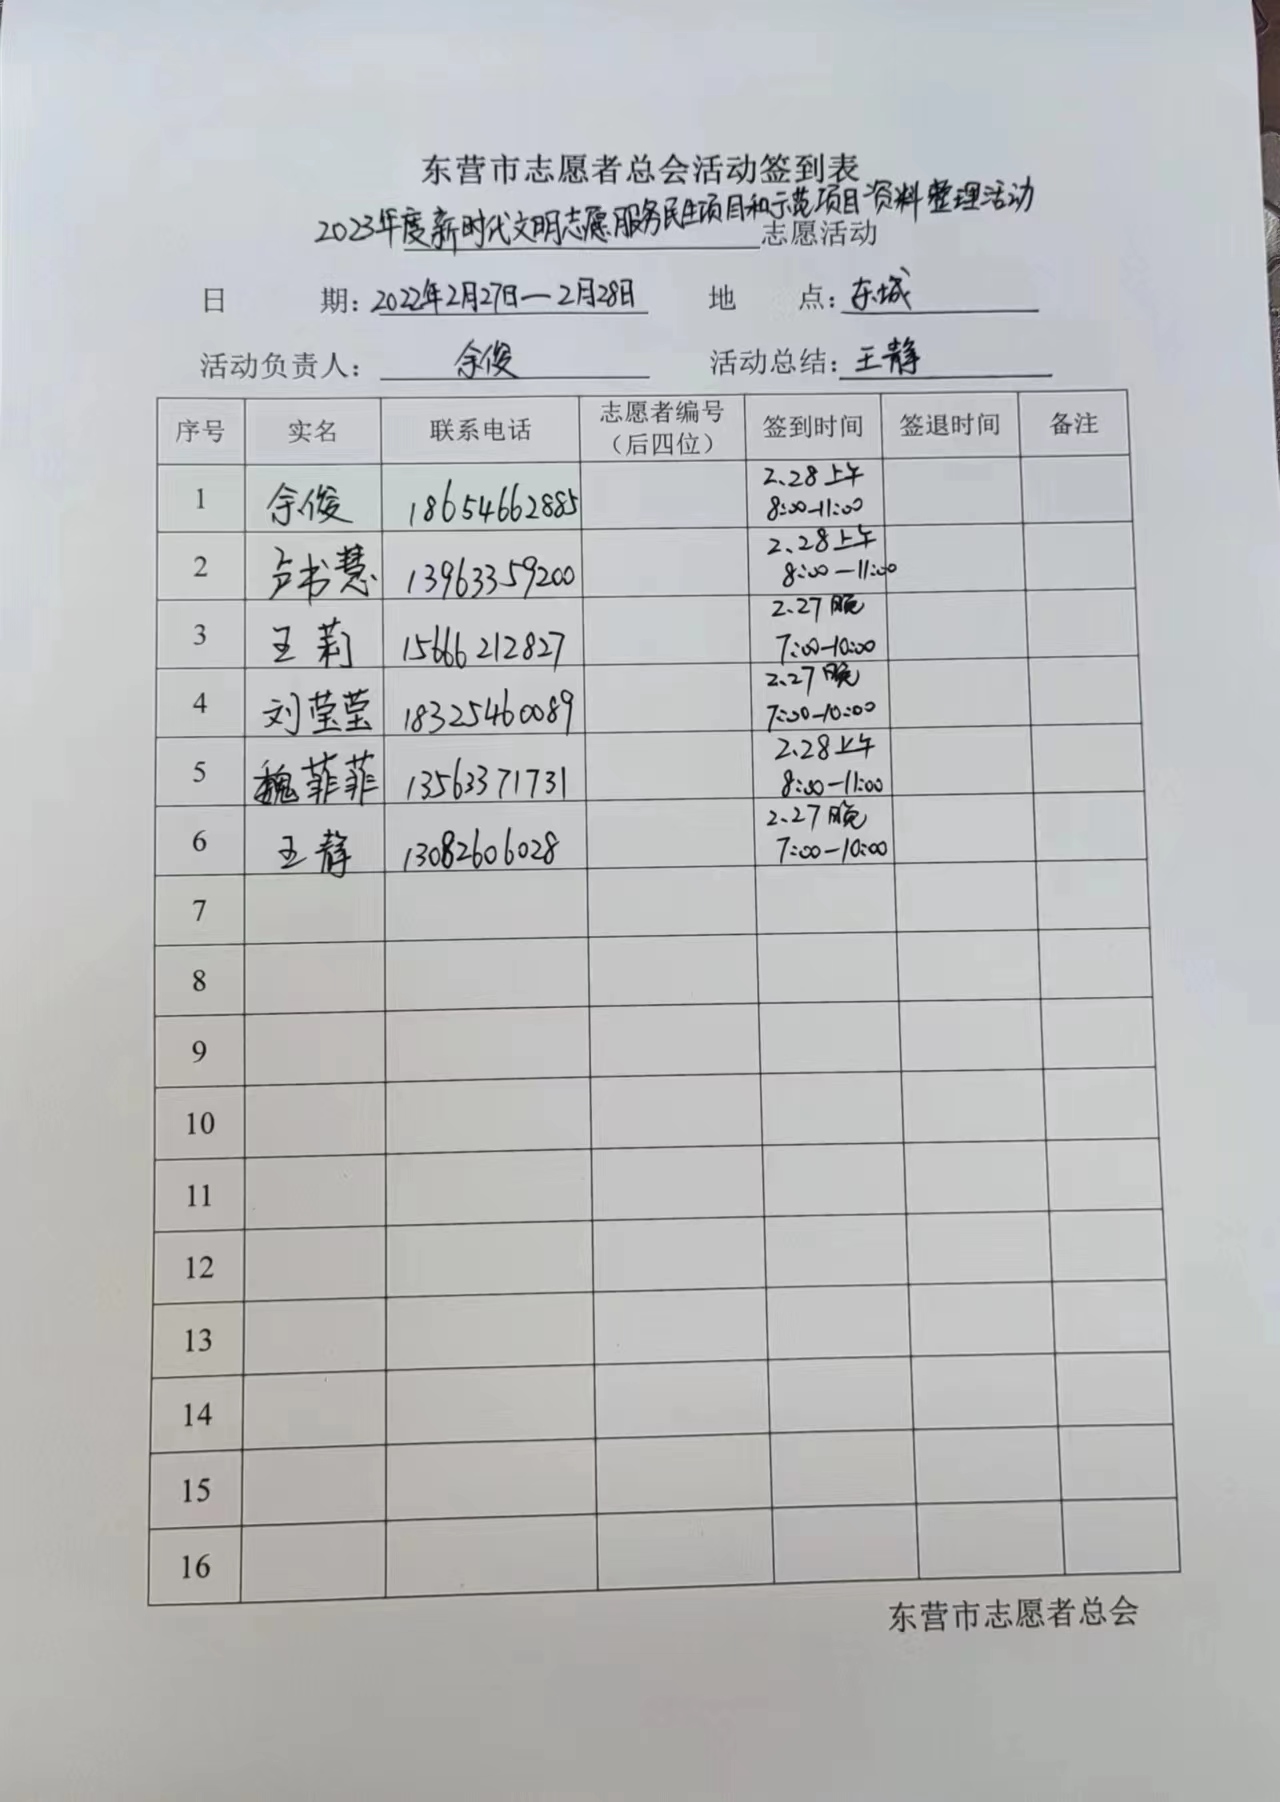 东营市志愿者总会活动签到表
2023年度新时代文明志愿服务民生项目和示范项目资料整理活动
志愿活动
日 期：2022年2月27日—2月28日 地 点：东城
活动负责人：余俊 活动总结：王静
序号 实名 联系电话 志愿者编号（后四位） 签到时间 签退时间 备注
1 余俊 18654662885 2.28上午 8:00-11:00
2 卢书慧 13963359200 2.28上午 8:00-11:00
3 王莉 15666212827 2.27晚 7:00-10:00
4 刘莹莹 18325460089 2.27晚 7:00-10:00
5 魏菲菲 13563371731 2.28上午 8:00-11:00
6 王静 13082606028 2.27晚 7:00-10:00
7
8
9
10
11
12
13
14
15
16
东营市志愿者总会